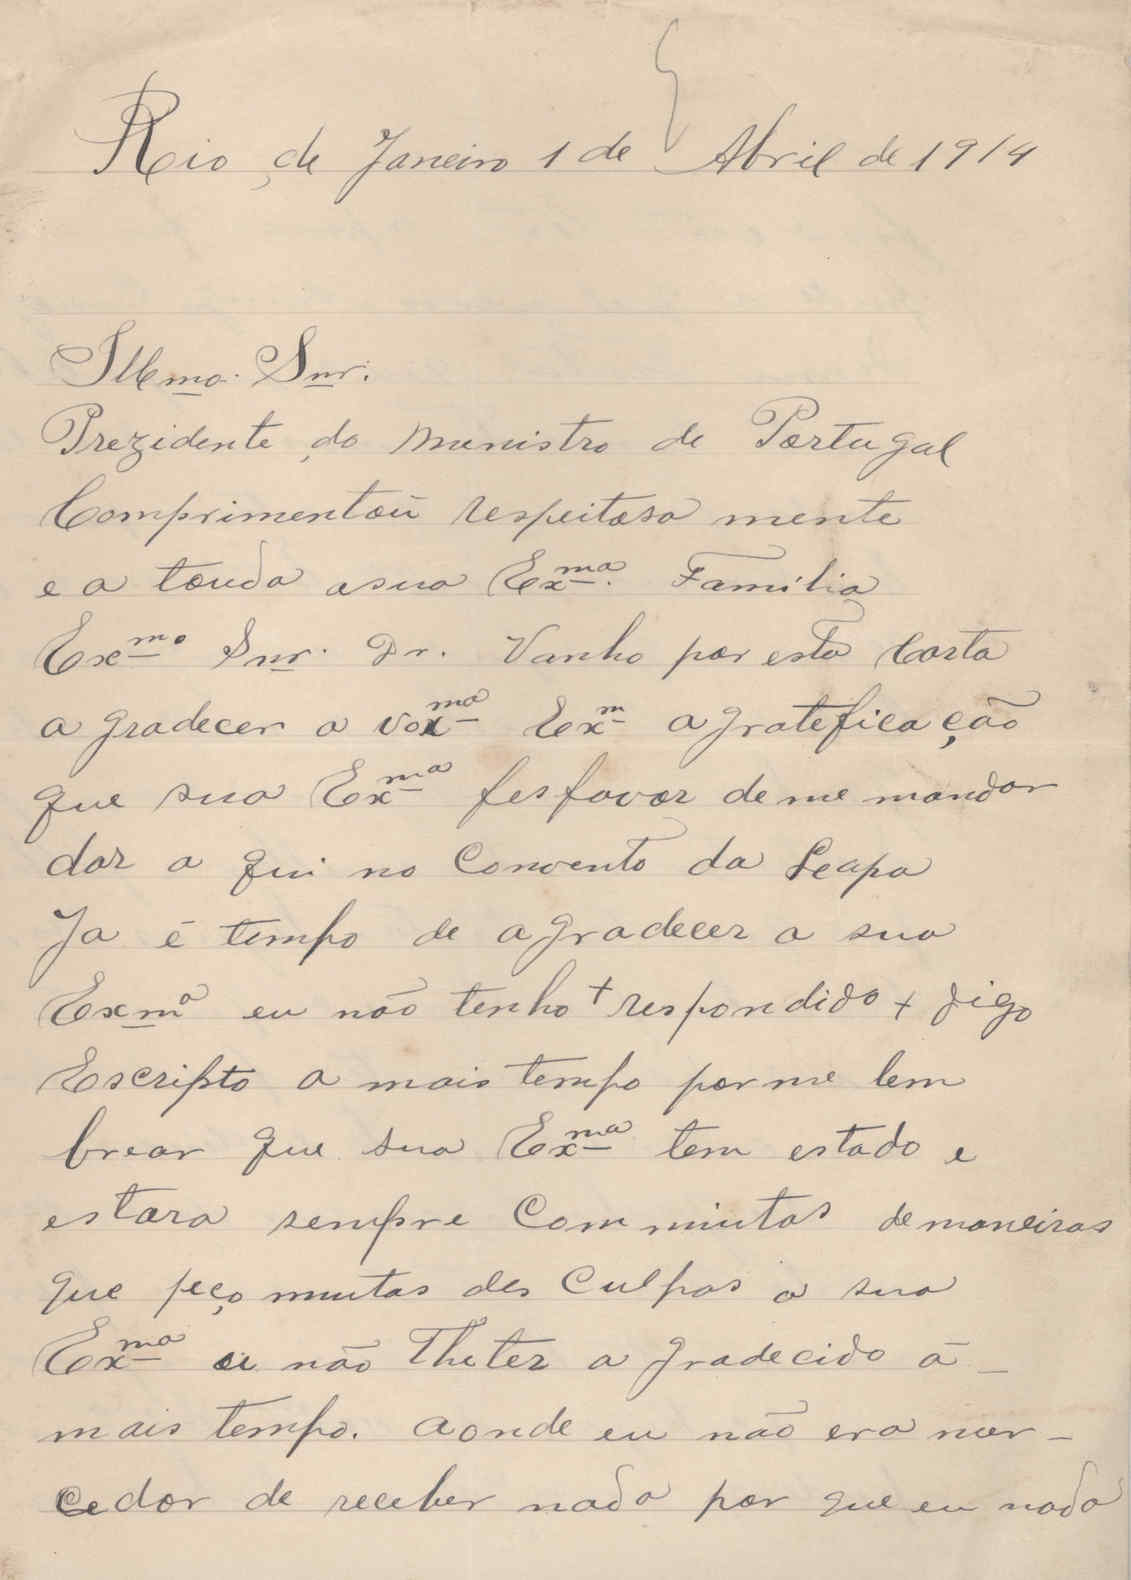 Rio de Janeiro 1 de Abril de 1914
Illmo. Snr.
Prezidente do Menistro de Portugal
Comprimentoú respeitosa mente
e a touda asua Exma. Familia
Exmo Snr. Dr. Vanho por esta Carta
a gradecer a voxma Exm a gratefica ção
que sua Exma fes favor de me mandar
dar a qui no Convento da Leapa
Ja é tempo de a gradecer a sua
Exma eu não tenho + respondido + digo
Escripto a mais tempo por me lem
brear que sua Exma tem estado e
estara sempre Com miutas de maneiras
que peço muitas des Culpas a sua
Exma eu não Theter a gradecido á -
mais tempo. aonde eu não era mer -
cedor de receber nada por que eu nada